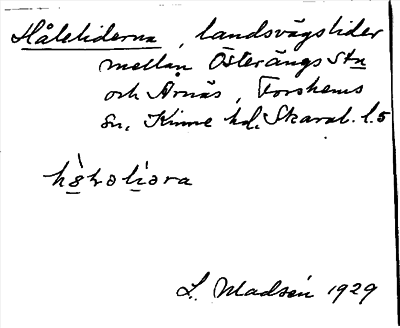 Håleliderna, landsvägslider
mellan Österängs Stn
och Årnäs, Forshems
sn, Kinne hd, Skarab. l.
L. Madsén 1929